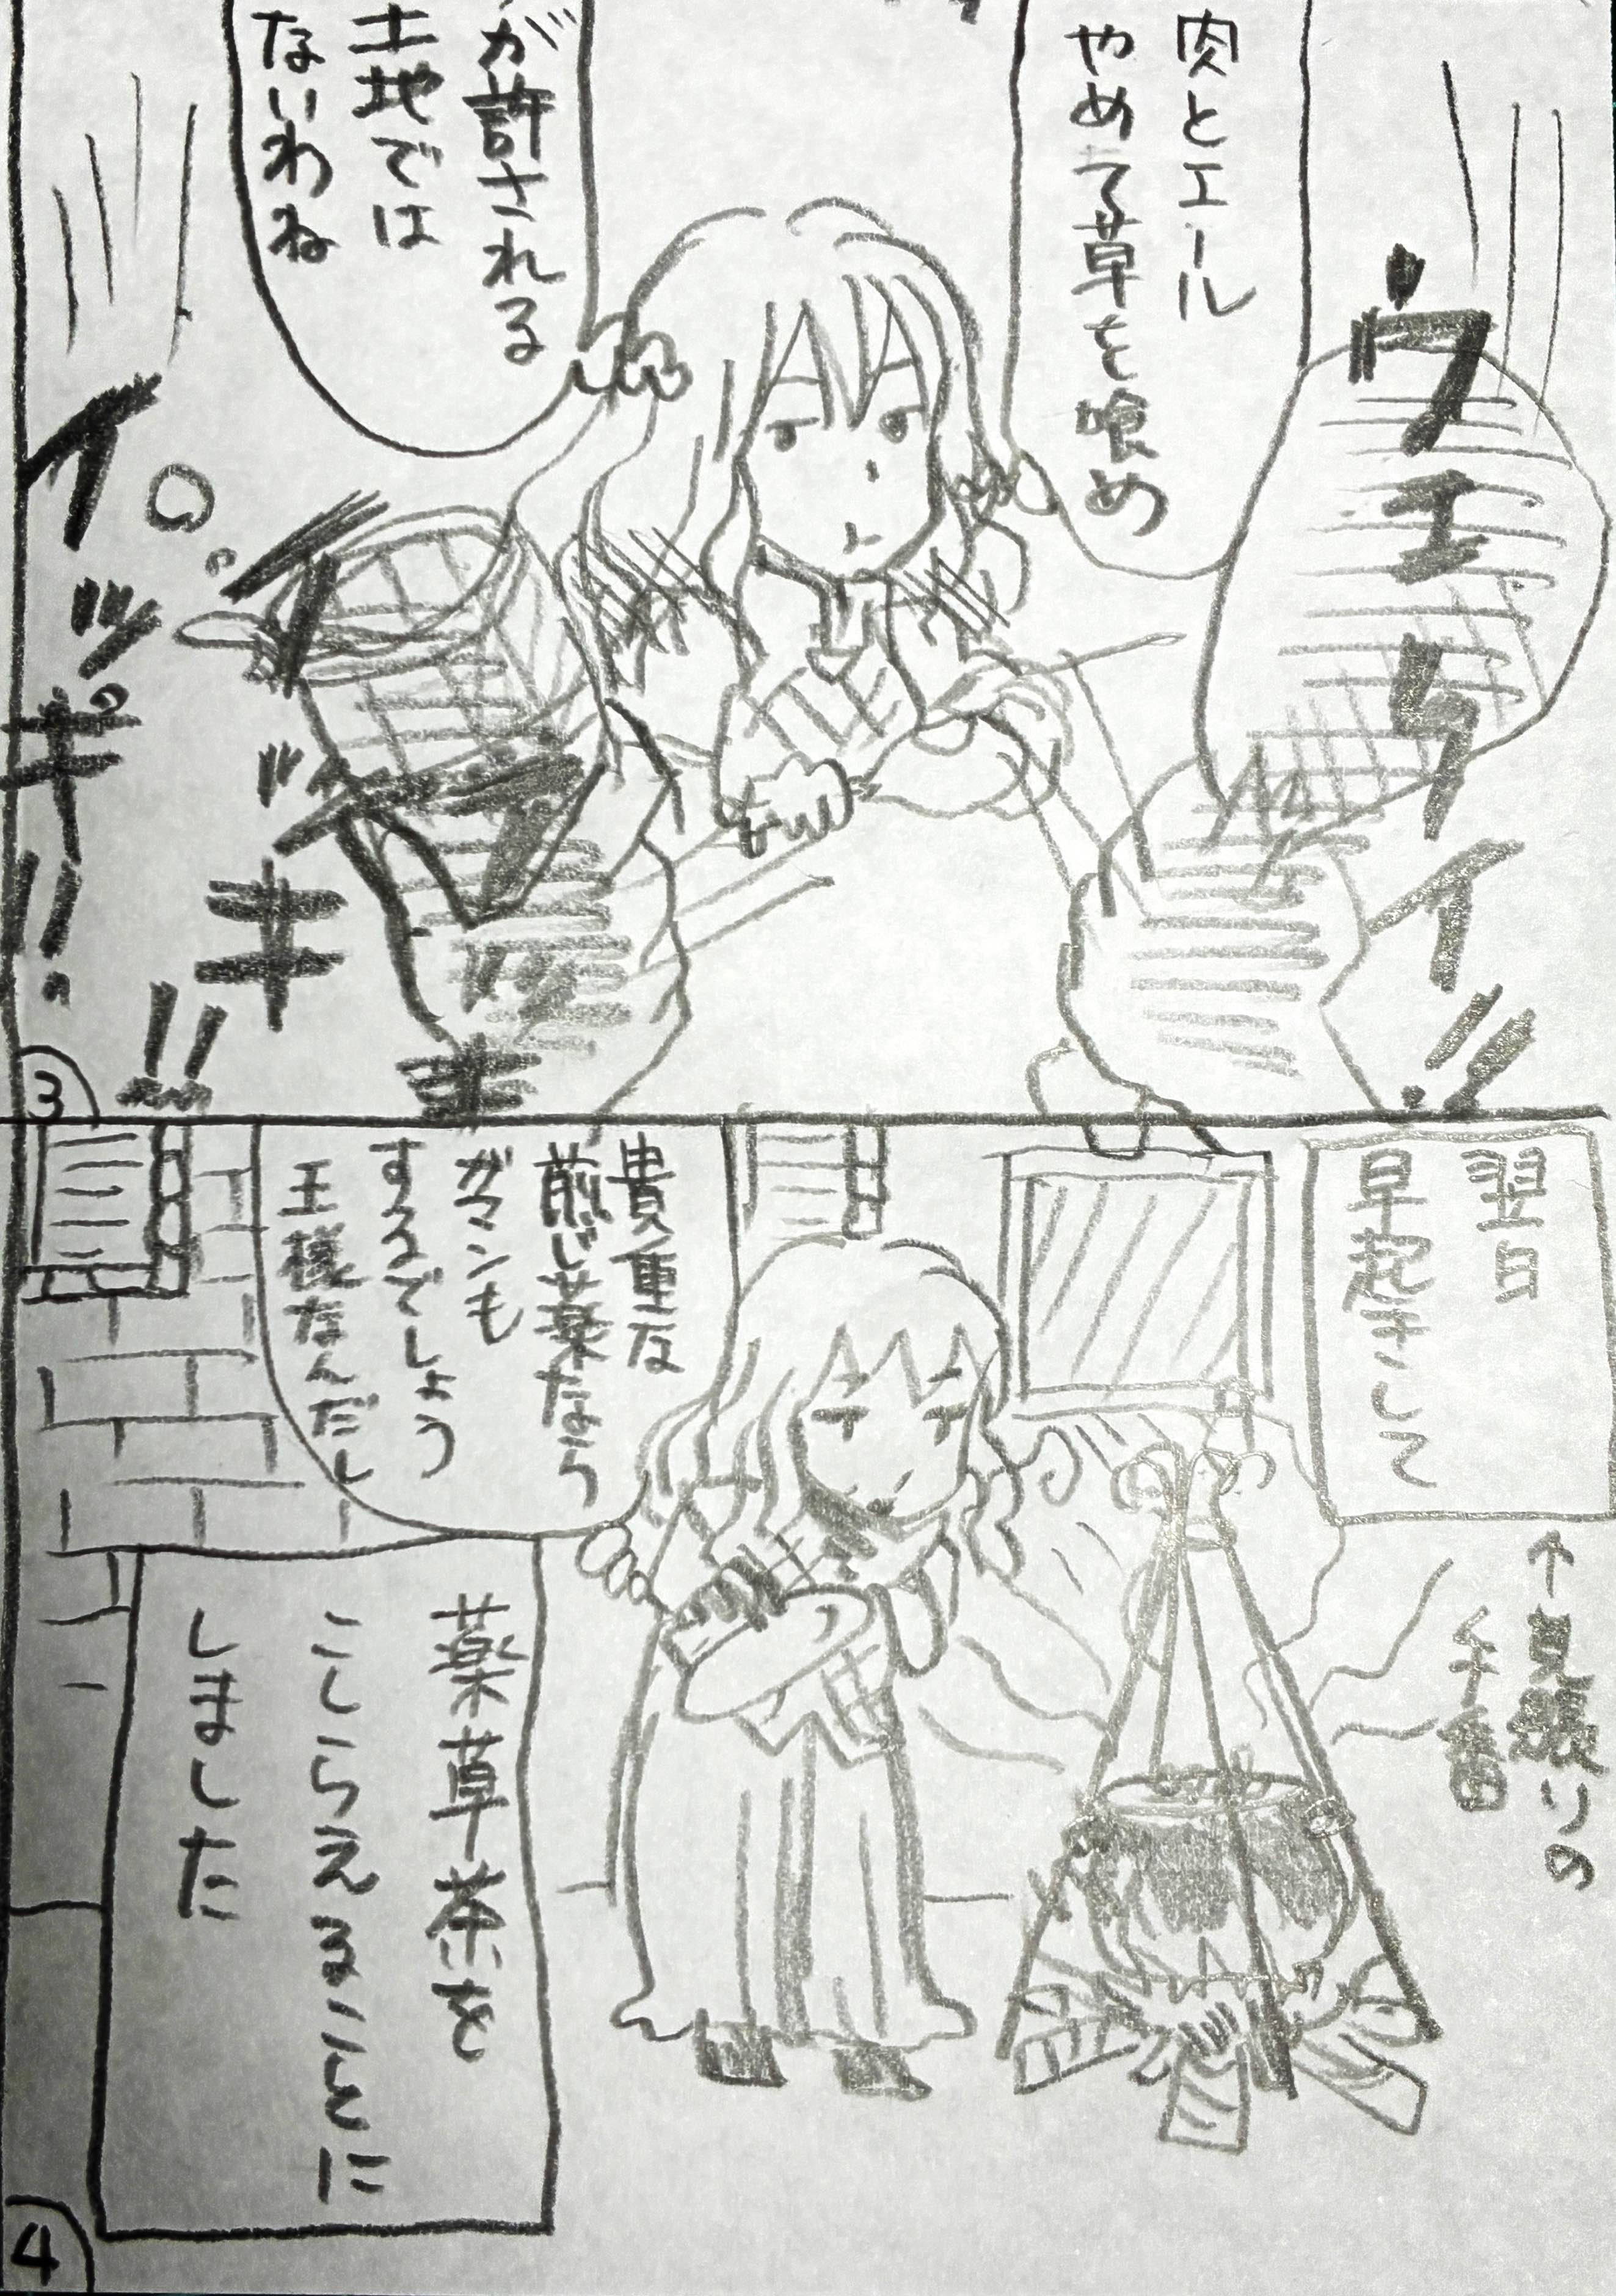 肉とエール
やめて草を喰め
が許される
土地では
ないわね
ウェーイ!!
イッキ!!
イッキ!!
3
翌日
早起きして
↑見張りの
千番
貴重な
煎じ薬なら
ガマンも
するでしょう
王様なんだし
薬草茶を
こしらえることに
しました
4